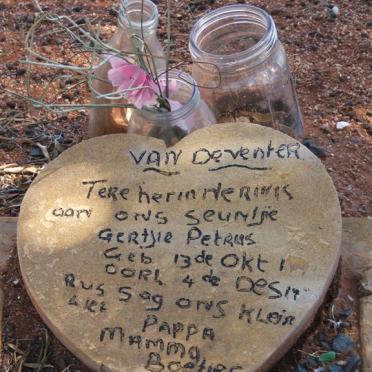 Van Deventer
Tere herinnering
aan ons seuntjie
Gertjie Petrus
Geb 13de Okt 1
Oorl 4de Des 1
Rus sag ons klein
Pappa
Mamma
Boetjie